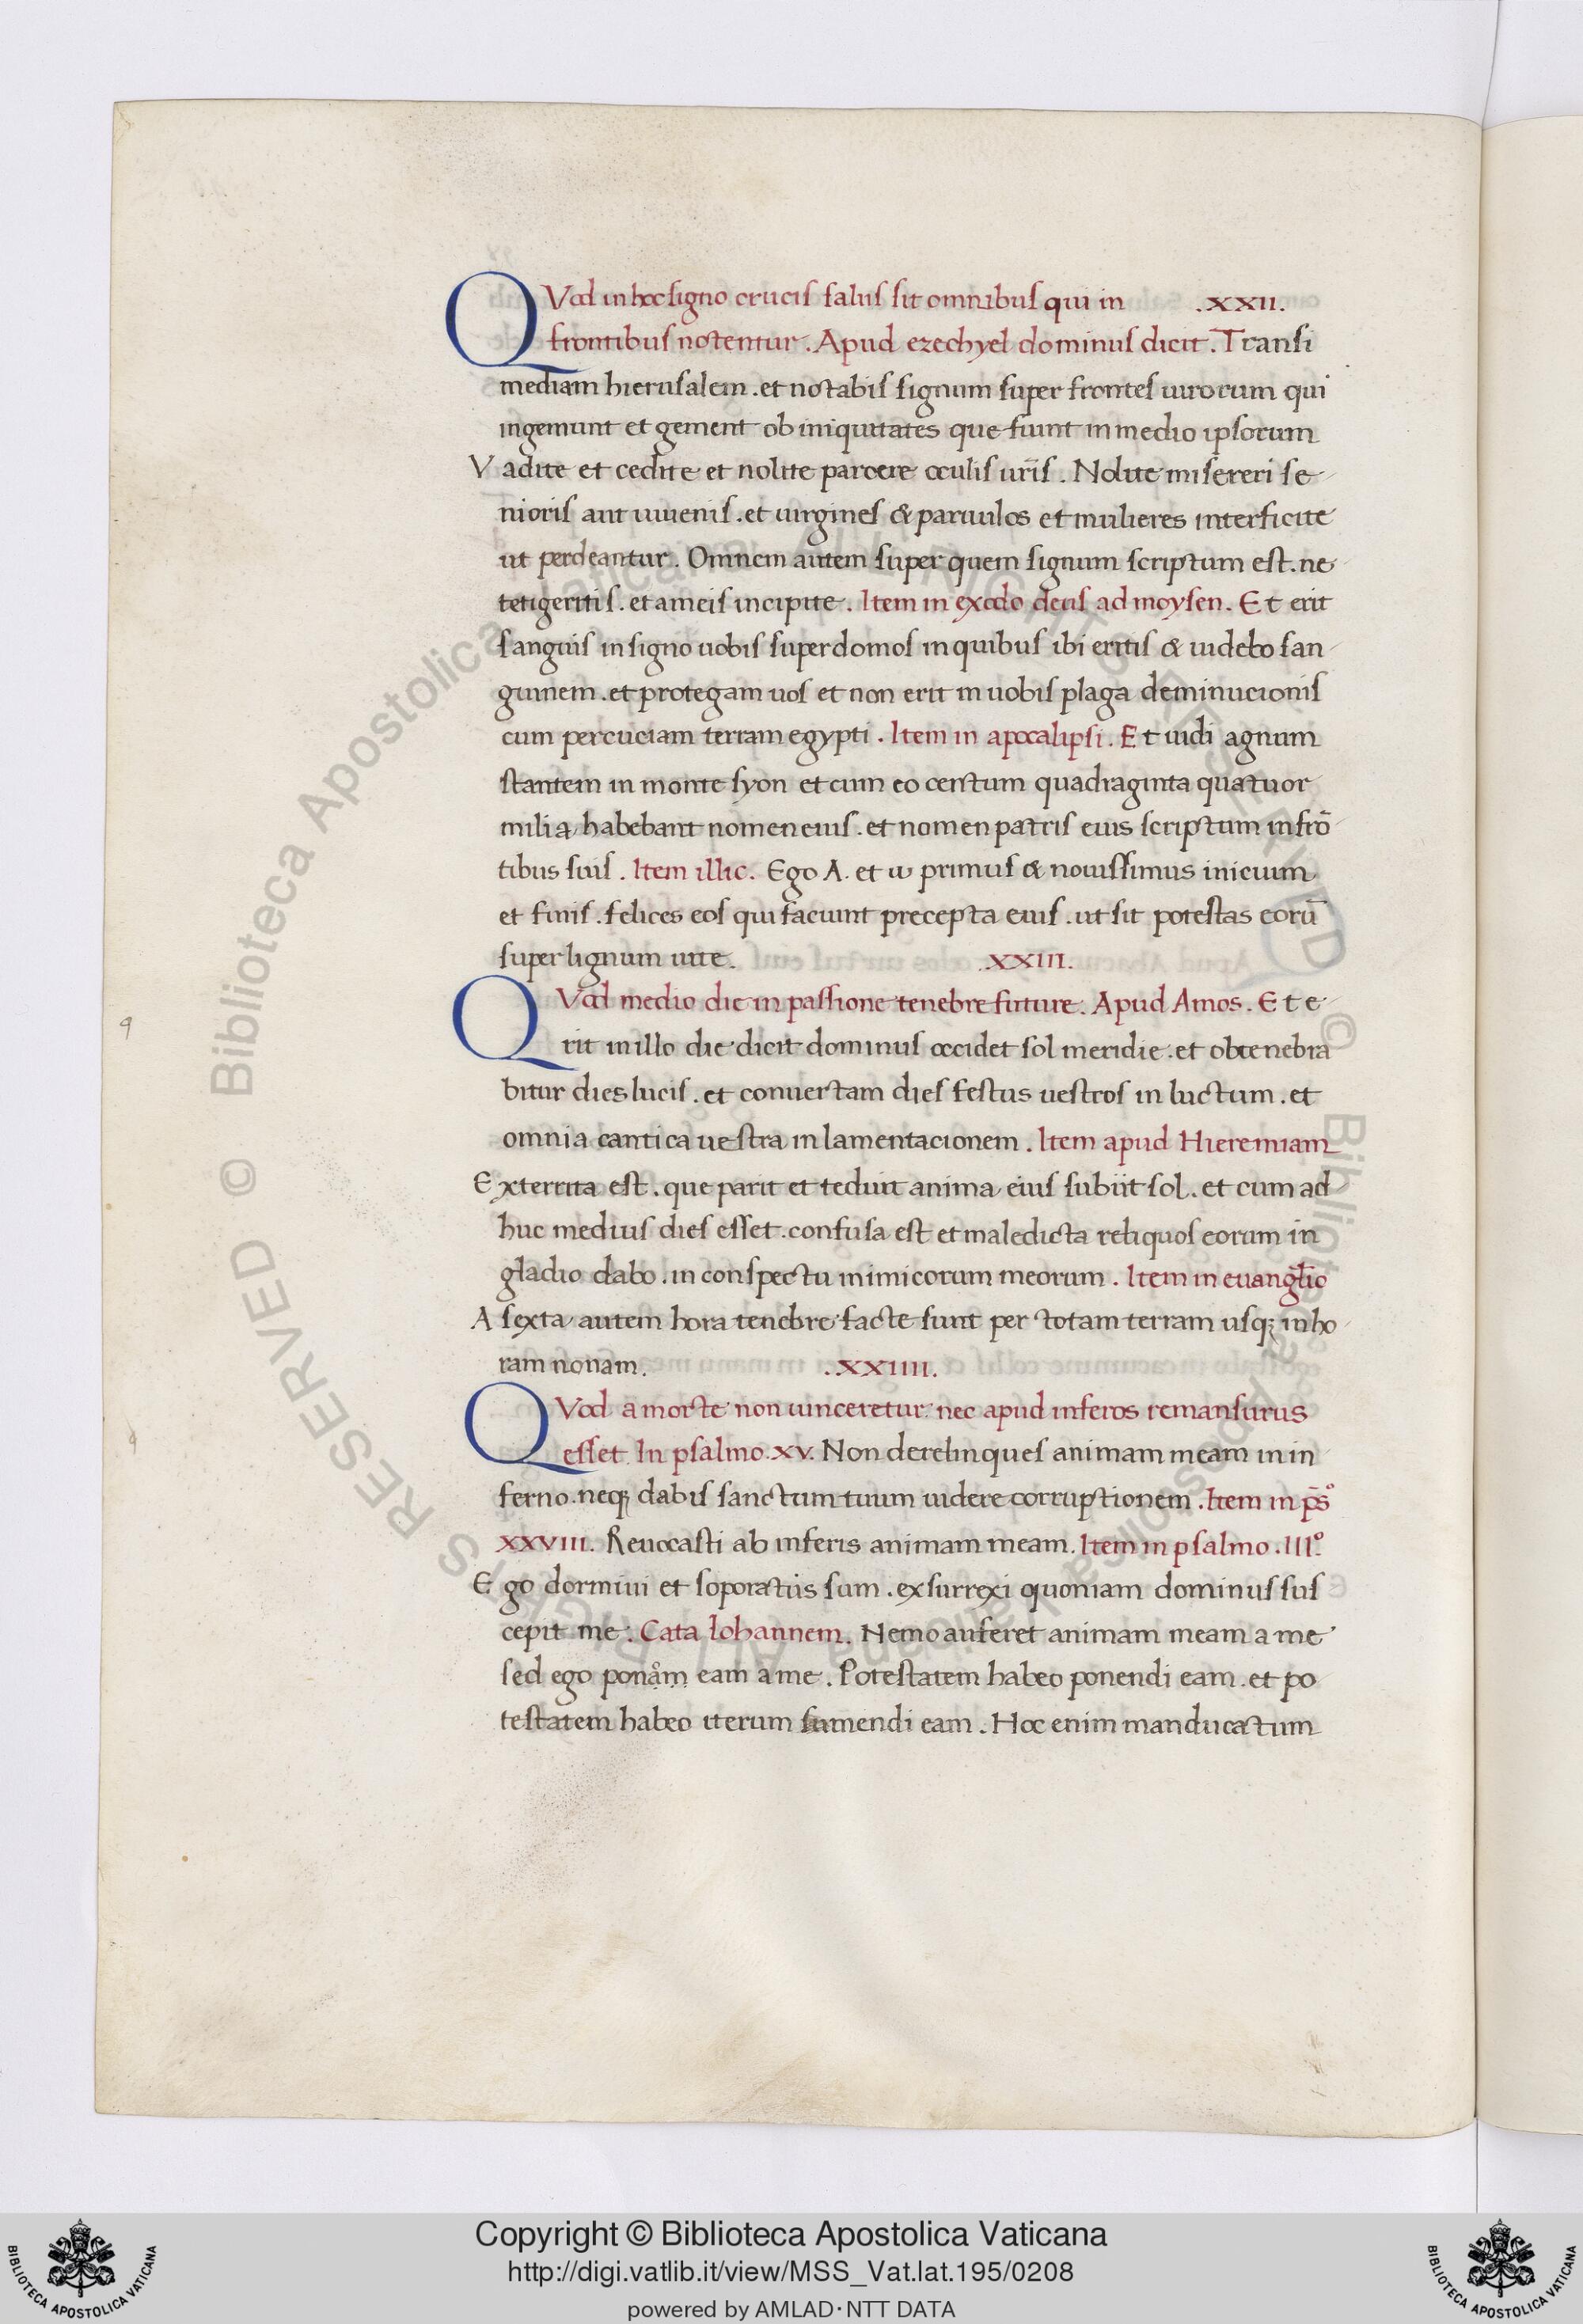 QVod in hoc signo crucis salus sit omnibus qui in .XXII.
frontibus notentur. Apud ezechyel dominus dicit. Transi
mediam hierusalem. et notabis signum super frontes uirorum qui
ingemunt et gement ob iniquitates que fiunt in medio ipsorum
Vadite et cedite et nolite parcere oculis uris̄. Nolite misereri se
nioris aut iuuenis. et uirgines & paruulos et mulieres interficite
ut perdeantur. Omnem autem super quem signum scriptum est. ne
tetigeritis. et a meis incipite. Item in exodo deus ad moysen. Et erit
sanguis in signo uobis super domos in quibus ibi eritis & uidebo san
guinem. et protegam uos et non erit in uobis plaga deminucionis
cum percuciam terram egypti. Item in apocalipsi. Et uidi agnum
stantem in monte syon et cum eo centum quadraginta quatuor
milia habebant nomen eius. et nomen patris eius scriptum in frō
tibus suis. Item illic. Ego A. et ω primus & nouissimus inicium
et finis. felices eos qui faciunt precepta eius. ut sit potestas eorū
super lignum uite. .XXIII.
QVod medio die in passione tenebre future. Apud Amos. Et e
rit in illo die dicit dominus occidet sol meridie. et obtenebra
bitur dies lucis. et conuertam dies festus uestros in luctum. et
omnia cantica uestra in lamentacionem. Item apud Hieremiam
Exterrita est. que parit et teduit anima eius subiit sol. et cum ad
huc medius dies esset. confusa est et maledicta reliquos eorum in
gladio dabo. in conspectu inimicorum meorum. Item in euangl̄io
A sexta autem hora tenebre facte sunt per totam terram usqȝ in ho
ram nonam. .XXIIII.
QVod a morte non uinceretur. nec apud inferos remansurus
esset. In psalmo .xv. Non derelinques animam meam in in
ferno. neqȝ dabis sanctum tuum uidere corruptionem. Item in ps̄º
XXVIII. Reuocasti ab inferis animam meam. Item in psalmo .IIIº.
Ego dormiui et soporatus sum. exsurrexi quoniam dominus sus
cepit me. Cata Iohannem. Nemo auferet animam meam a me
sed ego ponam eam a me. Potestatem habeo ponendi eam. et po
testatem habeo iterum sumendi eam. Hoc enim manducatum
Copyright © Biblioteca Apostolica Vaticana
http://digi.vatlib.it/view/MSS_Vat.lat.195/0208
powered by AMLAD·NTT DATA
BIBLIOTECA APOSTOLICA VATICANA
BIBLIOTECA APOSTOLICA VATICANA